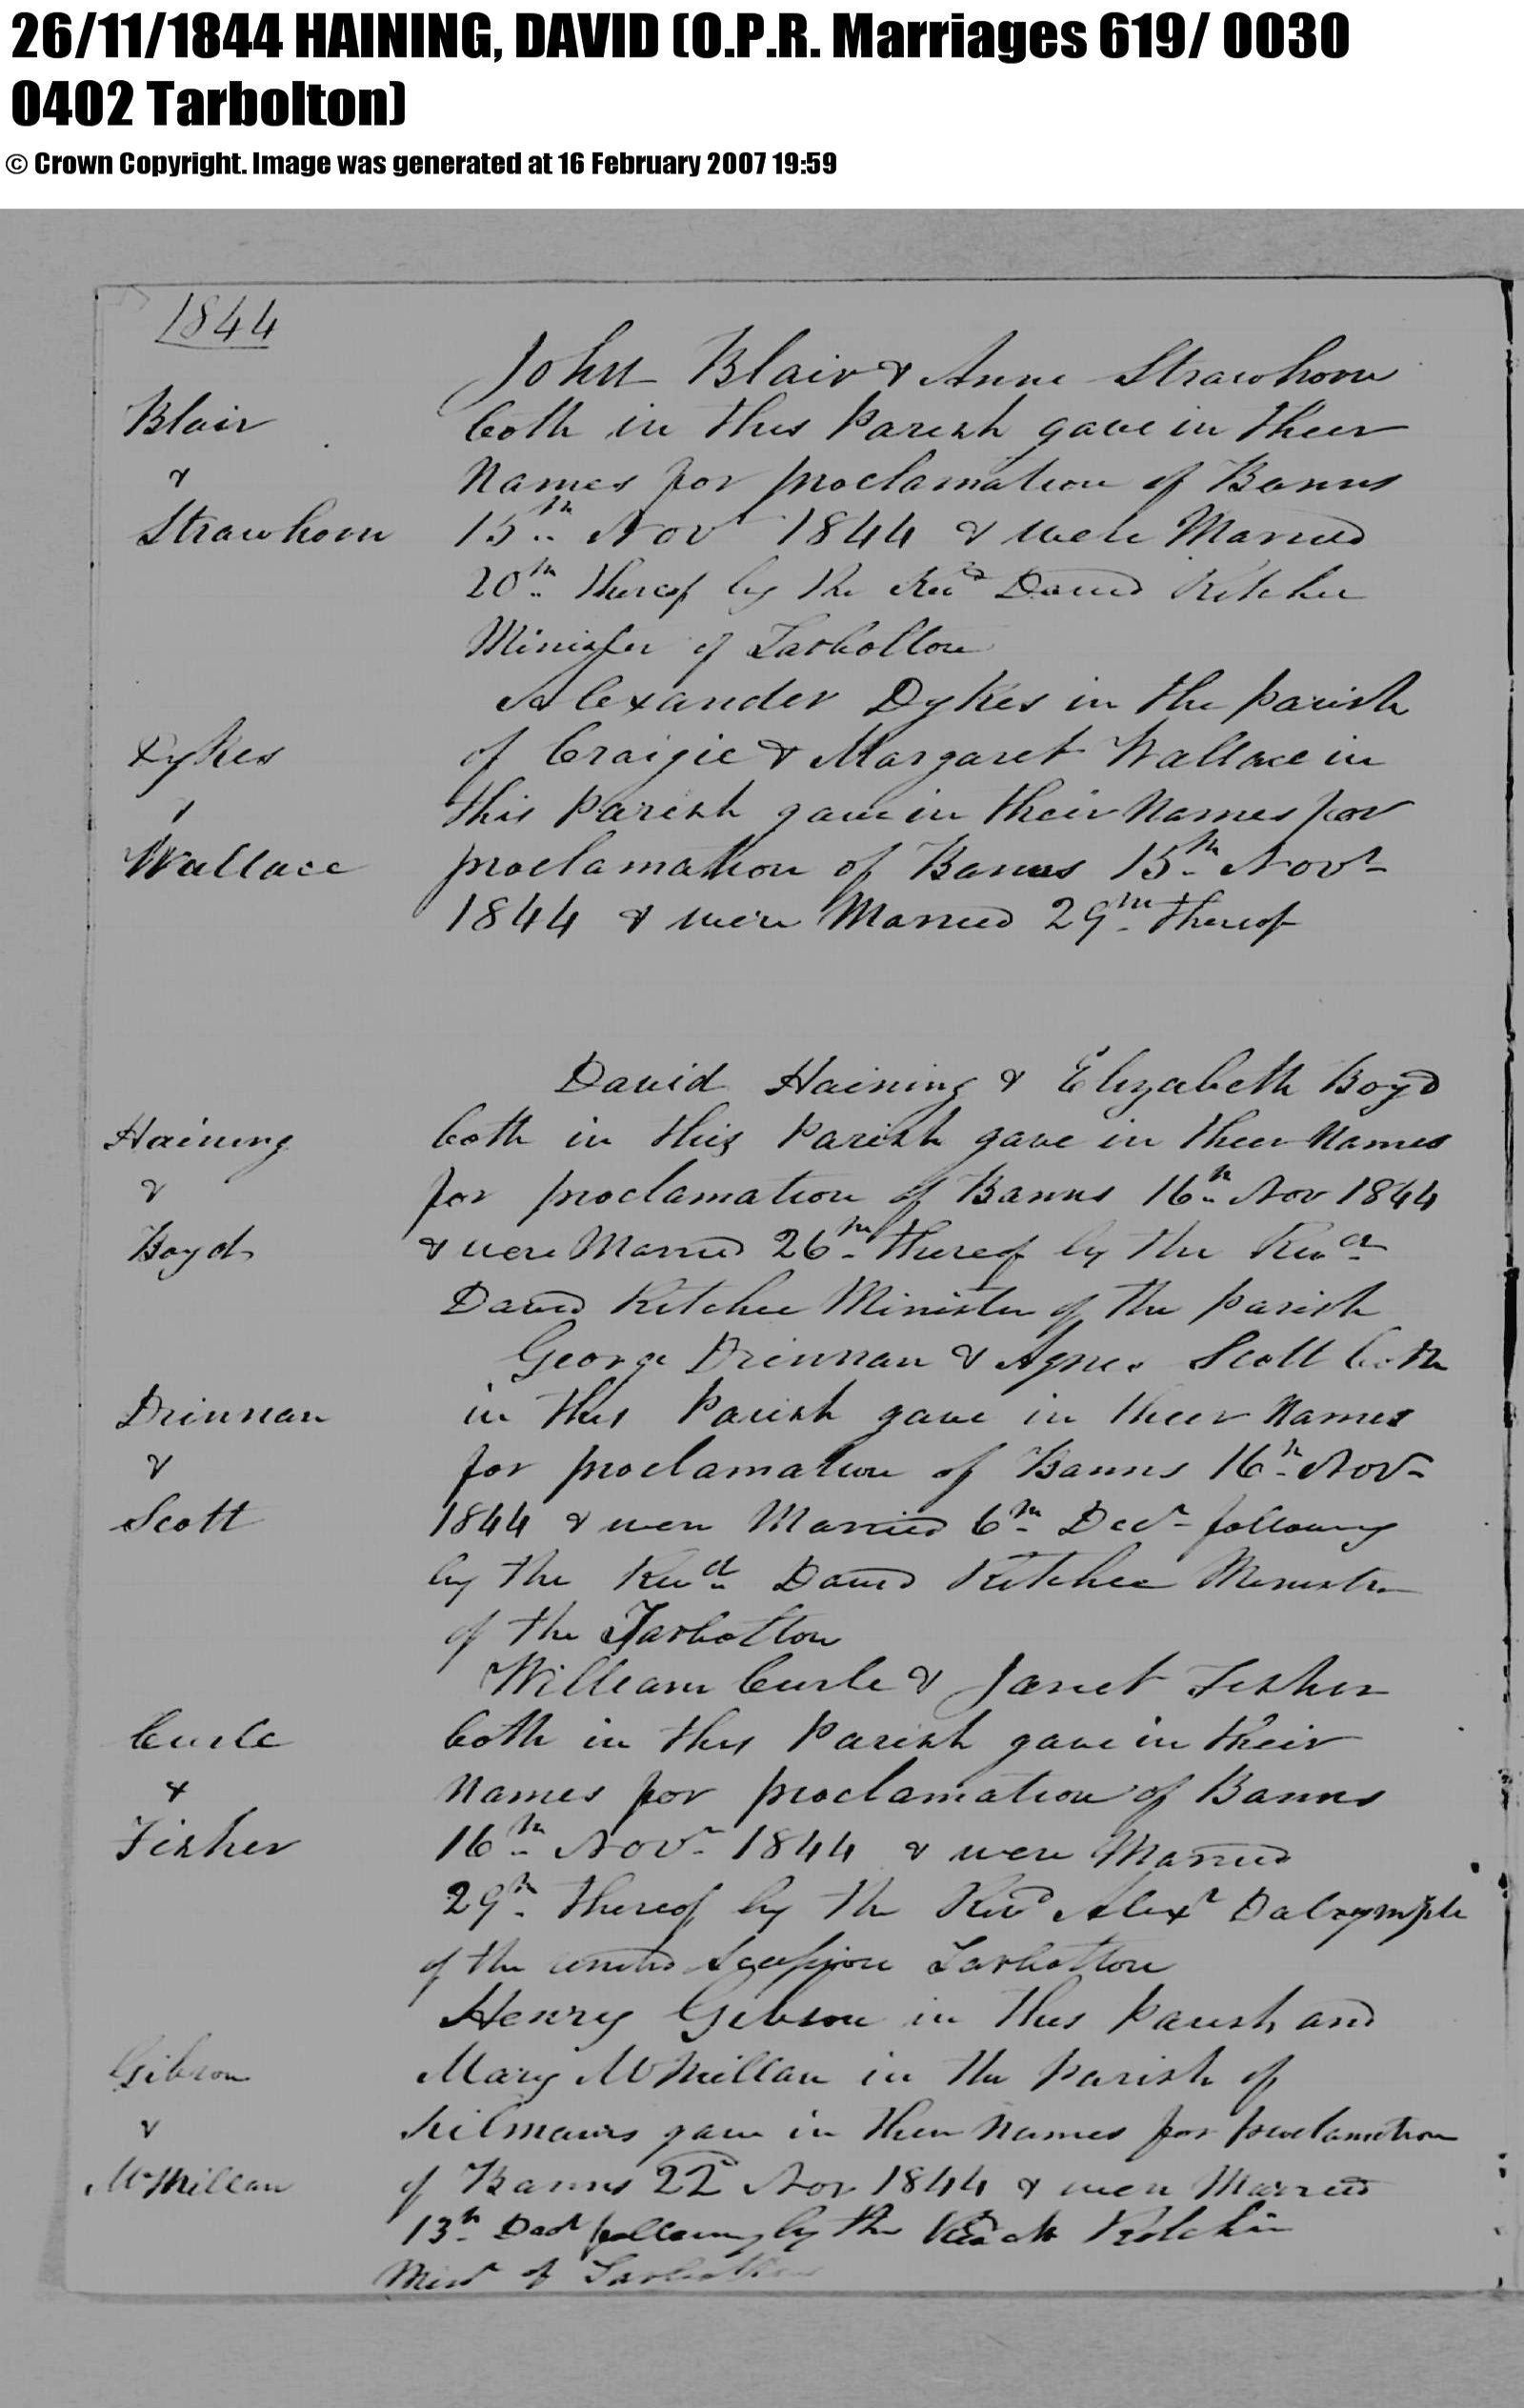 26/11/1844 HAINING, DAVID (O.P.R. Marriages 619/ 0030
0402 Tarbolton)
© Crown Copyright. Image was generated at 16 February 2007 19:59
1844
John Blair & Anne Strawhorn
Blair both in this Parish gave in their
& Names for proclamation of Banns
Strawhorn 15th Nov 1844 & were Married
20th thereof by the Revd David Ritchie
Minister of Tarbolton
Alexander Dykes in the parish
Dykes of Craigie & Margaret Wallace in
& this Parish gave in their Names for
Wallace proclamation of Banns 15th Novr
1844 & were Married 29th thereof
David Haining & Elizabeth Boyd
Haining both in this Parish gave in their Names
& for proclamation of Banns 16th Nov 1844
Boyd & were Married 26th thereof by the Revd
David Ritchie Minister of the parish
George Drinnan & Agnes Scott both
Drinnan in this Parish gave in their Names
& for proclamation of Banns 16th Novr
Scott 1844 & were Married 6th Decr following
by the Revd David Ritchie Minister
of the Tarbolton
William Curle & Janet Fisher
Curle both in this Parish gave in their
& Names for proclamation of Banns
Fisher 16th Novr 1844 & were Married
29th thereof by the Revd Alexr Dalrymple
of the united Secession Tarbolton
Henry Gibson in this Parish and
Gibson Mary McMillan in the parish of
& Kilmaurs gave in their Names for proclamation
McMillan of Banns 22d Nov 1844 & were Married
13th Decr following by the Revd Mr Ritchie
Minr of Tarbolton